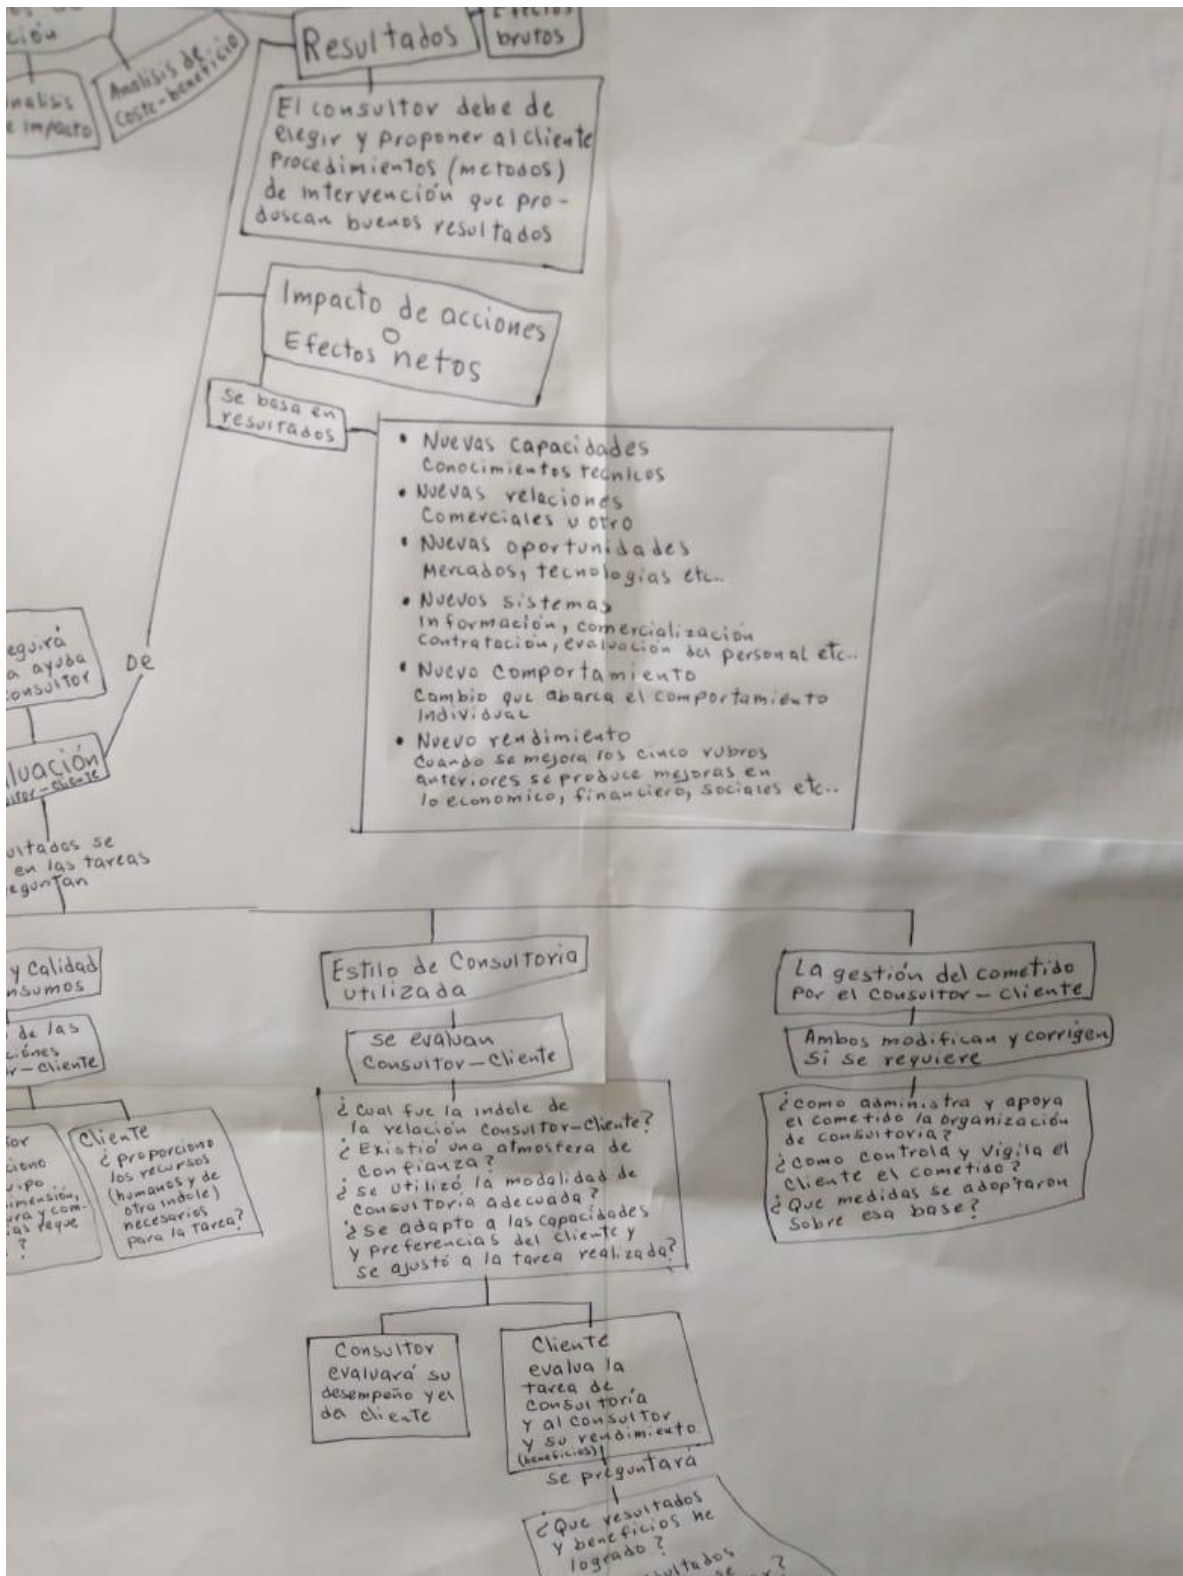 ción
Analisis de
Coste-beneficio
nalisis
e impacto
Resultados
Efectos
brutos
El consultor debe de
elegir y proponer al cliente
Procedimientos (metodos)
de intervención que pro-
duscan buenos resultados
Impacto de acciones
O
Efectos netos
Se basa en
resultados
• Nuevas capacidades
Conocimientos tecnicos
• Nuevas relaciones
Comerciales u otro
• Nuevas oportunidades
Mercados, tecnologias etc..
• Nuevos sistemas
Información, comercialización
Contratación, evaluación del personal etc..
• Nuevo comportamiento
Cambio que abarca el comportamiento
Individual
• Nuevo rendimiento
Cuando se mejora los cinco rubros
anteriores se produce mejoras en
lo economico, financiero, sociales etc..
eguirá
a ayuda
consultor
De
luación
ultor-cliente
ultados se
en las tareas
eguntan
y Calidad
nsumos
de las
ciónes
r-cliente
tor
ciono
uipo
imensión,
ura y com-
ias reque
?
Cliente
¿proporciono
los recursos
(humanos y de
otra indole)
necesarios
para la tarea?
Estilo de Consultoria
utilizada
se evaluan
Consultor-Cliente
¿Cual fue la indole de
la relación Consultor-Cliente?
¿Existió una atmosfera de
confianza?
¿se utilizó la modalidad de
consultoria adecuada?
¿Se adapto a las capacidades
y preferencias del cliente y
se ajustó a la tarea realizada?
Consultor
evaluará su
desempeño y el
del cliente
Cliente
evalua la
tarea de
consultoría
y al consultor
y su rendimiento.
(beneficios)
se preguntará
¿Que resultados
y beneficios he
logrado?
sultados
se
?
La gestión del cometido
por el consultor-cliente
Ambos modifican y corrigen
Si se requiere
¿como administra y apoya
el cometido la organización
de consultoria?
¿como controla y vigila el
cliente el cometido?
¿Que medidas se adoptaron
sobre esa base?